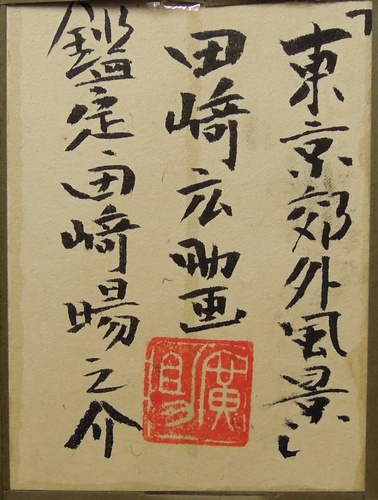 「東京郊外風景」
田崎広助画
鑑定田崎暘之介
廣助